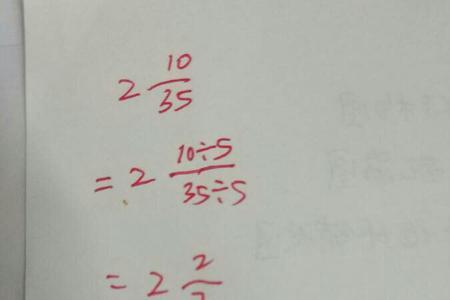 2 10/35
= 2 10÷5/35÷5
= 2 2/